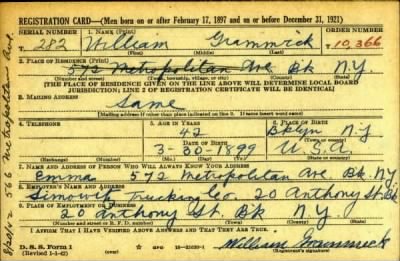 REGISTRATION CARD—(Men born on or after February 17, 1897 and on or before December 31, 1921)
SERIAL NUMBER 1. NAME (Print) ORDER NUMBER
282 William Grammick 10,366
(First) (Middle) (Last)
2. PLACE OF RESIDENCE (Print)
572 Metropolitan Ave Bk N.Y.
(Number and street) (Town, township, village, or city) (County) (State)
[THE PLACE OF RESIDENCE GIVEN ON THE LINE ABOVE WILL DETERMINE LOCAL BOARD
JURISDICTION; LINE 2 OF REGISTRATION CERTIFICATE WILL BE IDENTICAL]
3. MAILING ADDRESS
Same
[Mailing address if other than place indicated on line 2. If same insert word same]
4. TELEPHONE 5. AGE IN YEARS 6. PLACE OF BIRTH
42 Bklyn N.Y.
DATE OF BIRTH (Town or county)
3-30-1899 U.S.A
(Exchange) (Number) (Mo.) (Day) (Yr.) (State or country)
7. NAME AND ADDRESS OF PERSON WHO WILL ALWAYS KNOW YOUR ADDRESS
Emma 572 Metropolitan Ave Bk. N.Y.
8. EMPLOYER'S NAME AND ADDRESS
Trucking Co. 20 Anthony St. Bk
9. PLACE OF EMPLOYMENT OR BUSINESS
20 Anthony St. Bk N.Y.
(Number and street or R. F. D. number) (Town) (County) (State)
I AFFIRM THAT I HAVE VERIFIED ABOVE ANSWERS AND THAT THEY ARE TRUE.
D. S. S. Form 1
(Revised 1-1-42) (over)
William Grammick
566 Metropolitan Ave.